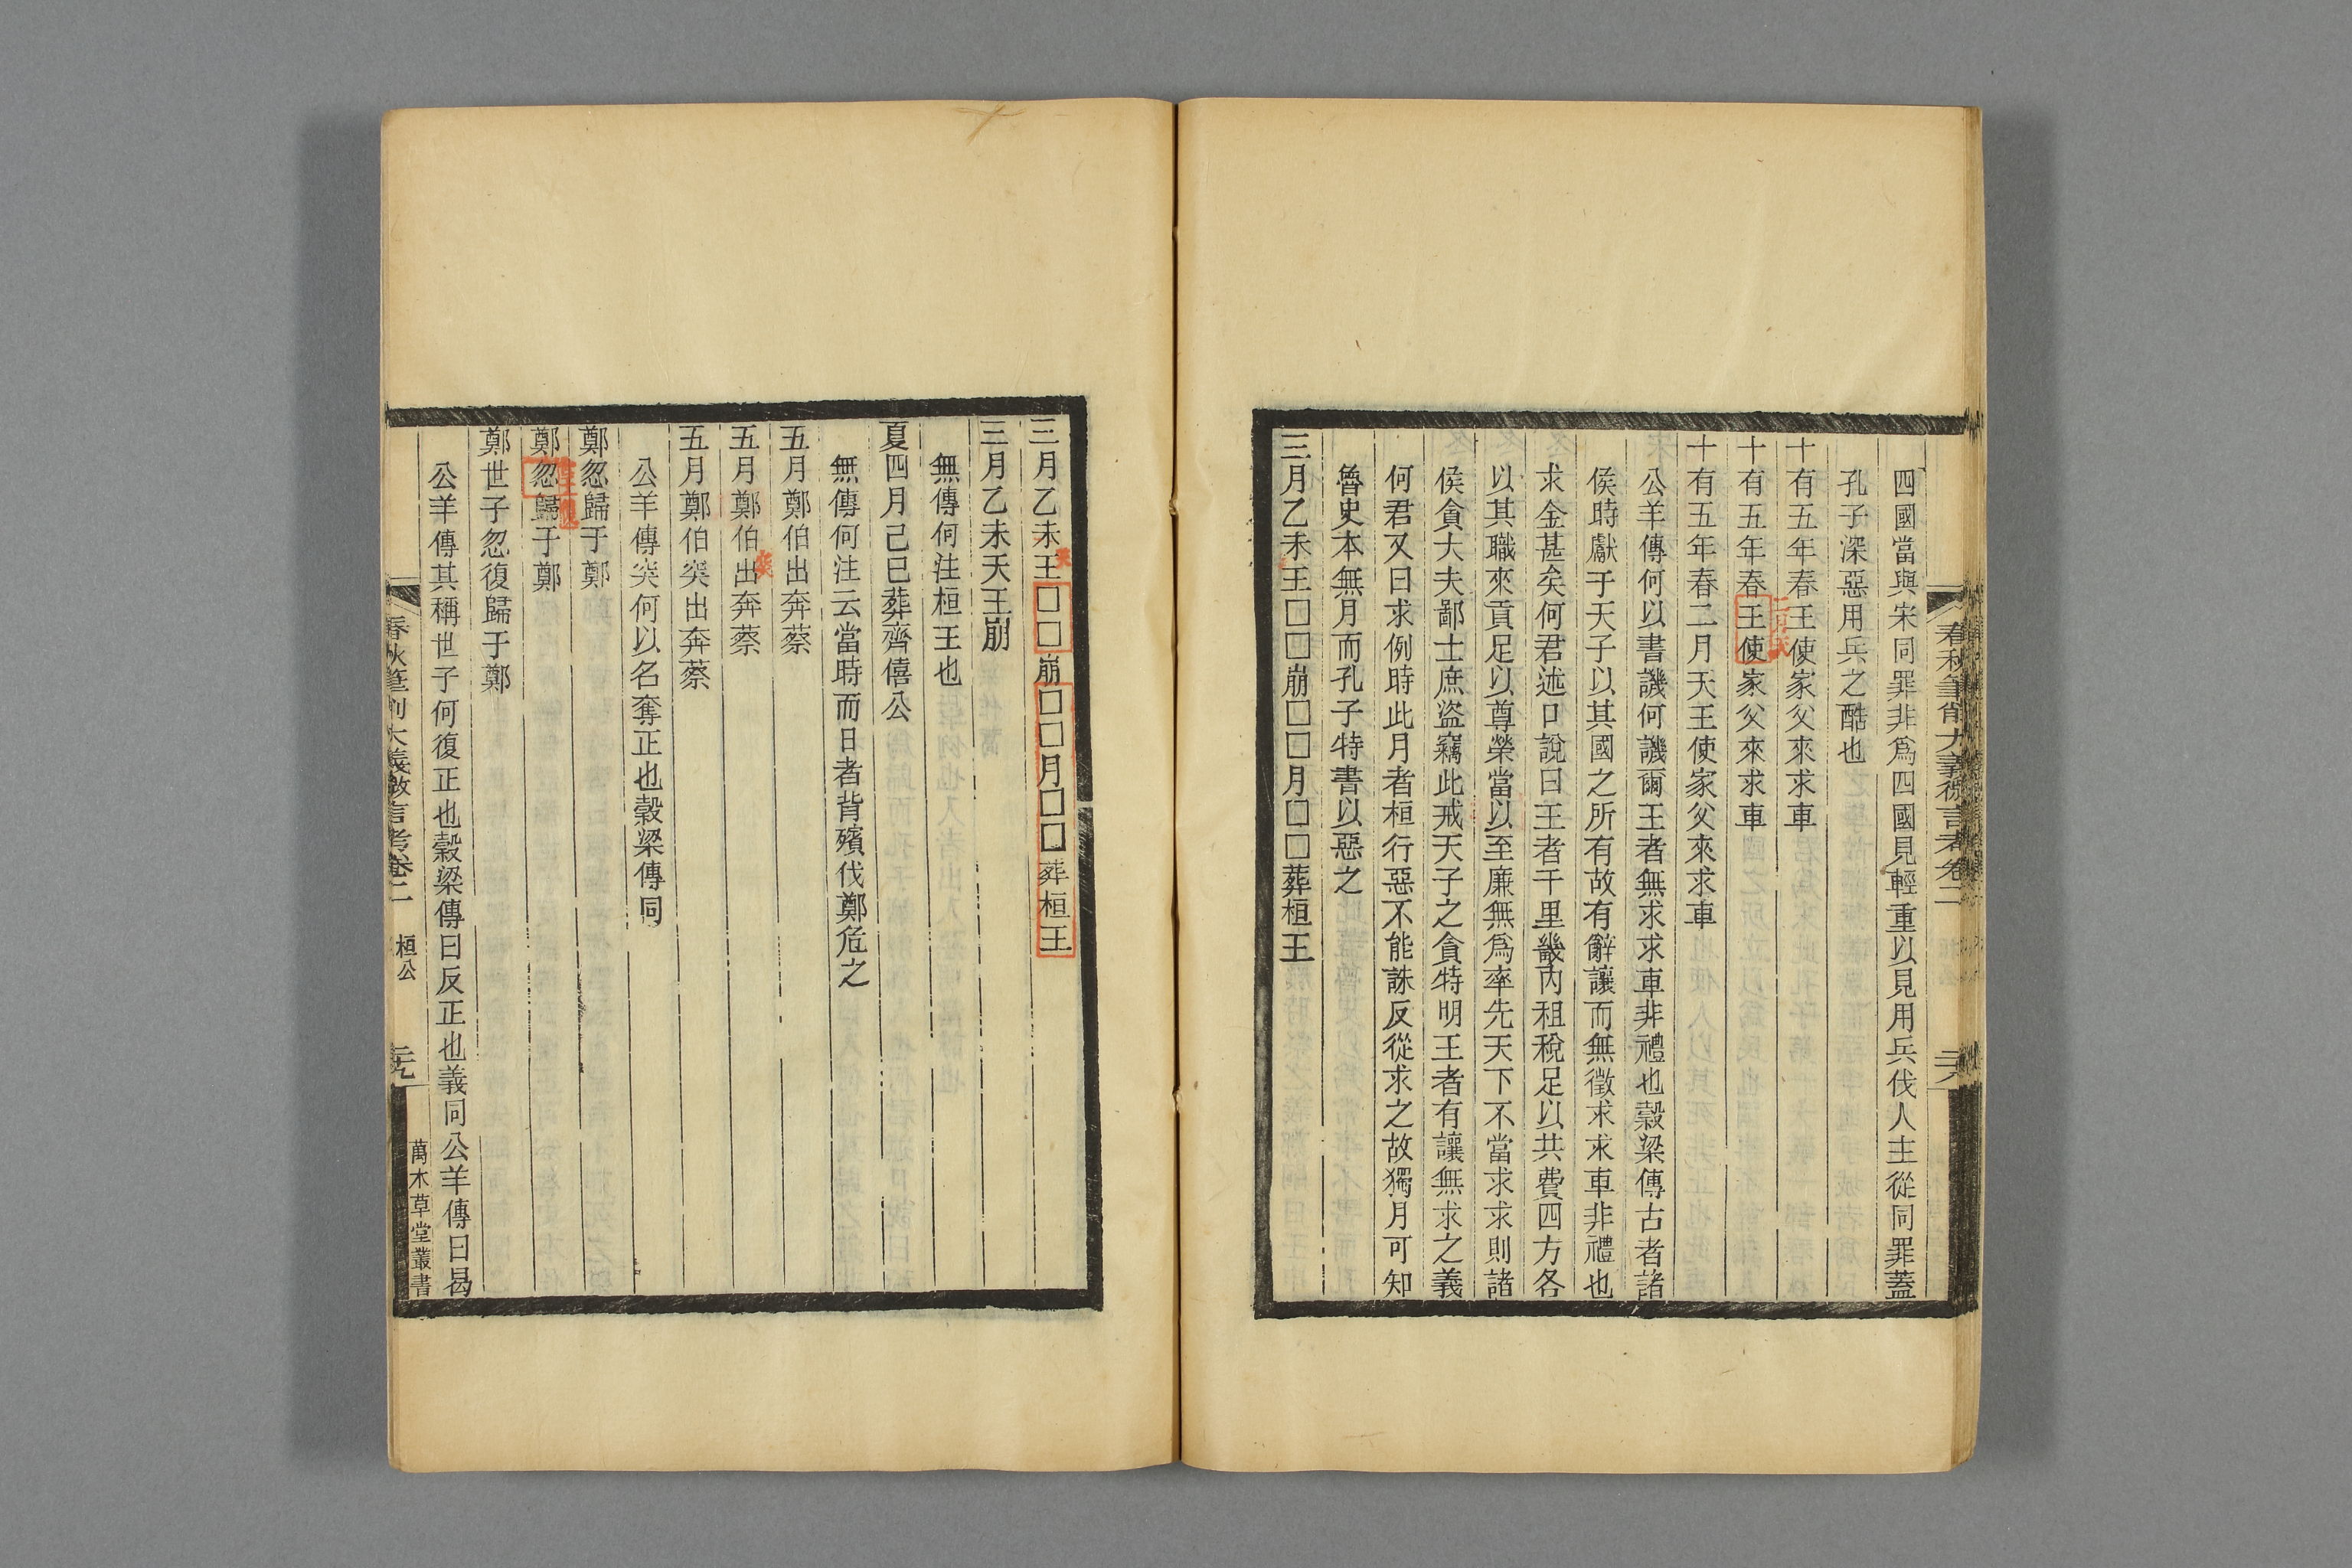 春秋筆削大義微言考卷二
四國當與宋同罪非爲四國見輕重以見用兵伐人主從同罪蓋
孔子深惡用兵之酷也
十有五年春王使家父來求車
二月天
十有五年春王使家父來求車
十有五年春二月天王使家父來求車
公羊傳何以書譏何譏爾王者無求求車非禮也穀梁傳古者諸
侯時獻于天子以其國之所有故有辭讓而無徵求求車非禮也
求金甚矣何君述口說曰王者千里畿內租稅足以共費四方各
以其職來貢足以尊榮當以至廉無爲率先天下不當求求則諸
侯貪大夫鄙士庶盜竊此戒天子之貪特明王者有讓無求之義
何君又曰求例時此月者桓行惡不能誅反從求之故獨月可知
魯史本無月而孔子特書以惡之
三月乙未王□□崩□□月□□葬桓王
天
三月乙未王□□崩□□月□□葬桓王
三月乙未天王崩
無傳何注桓王也
夏四月己巳葬齊僖公
無傳何注云當時而日者背殯伐鄭危之
五月鄭伯出奔蔡
突
五月鄭伯出奔蔡
五月鄭伯突出奔蔡
公羊傳突何以名奪正也穀梁傳同
鄭忽歸于鄭
鄭忽歸于鄭
鄭世子忽復歸于鄭
公羊傳其稱世子何復正也穀梁傳曰反正也義同公羊傳曰曷
春秋筆削大義微言考卷二 桓公
萬木草堂叢書